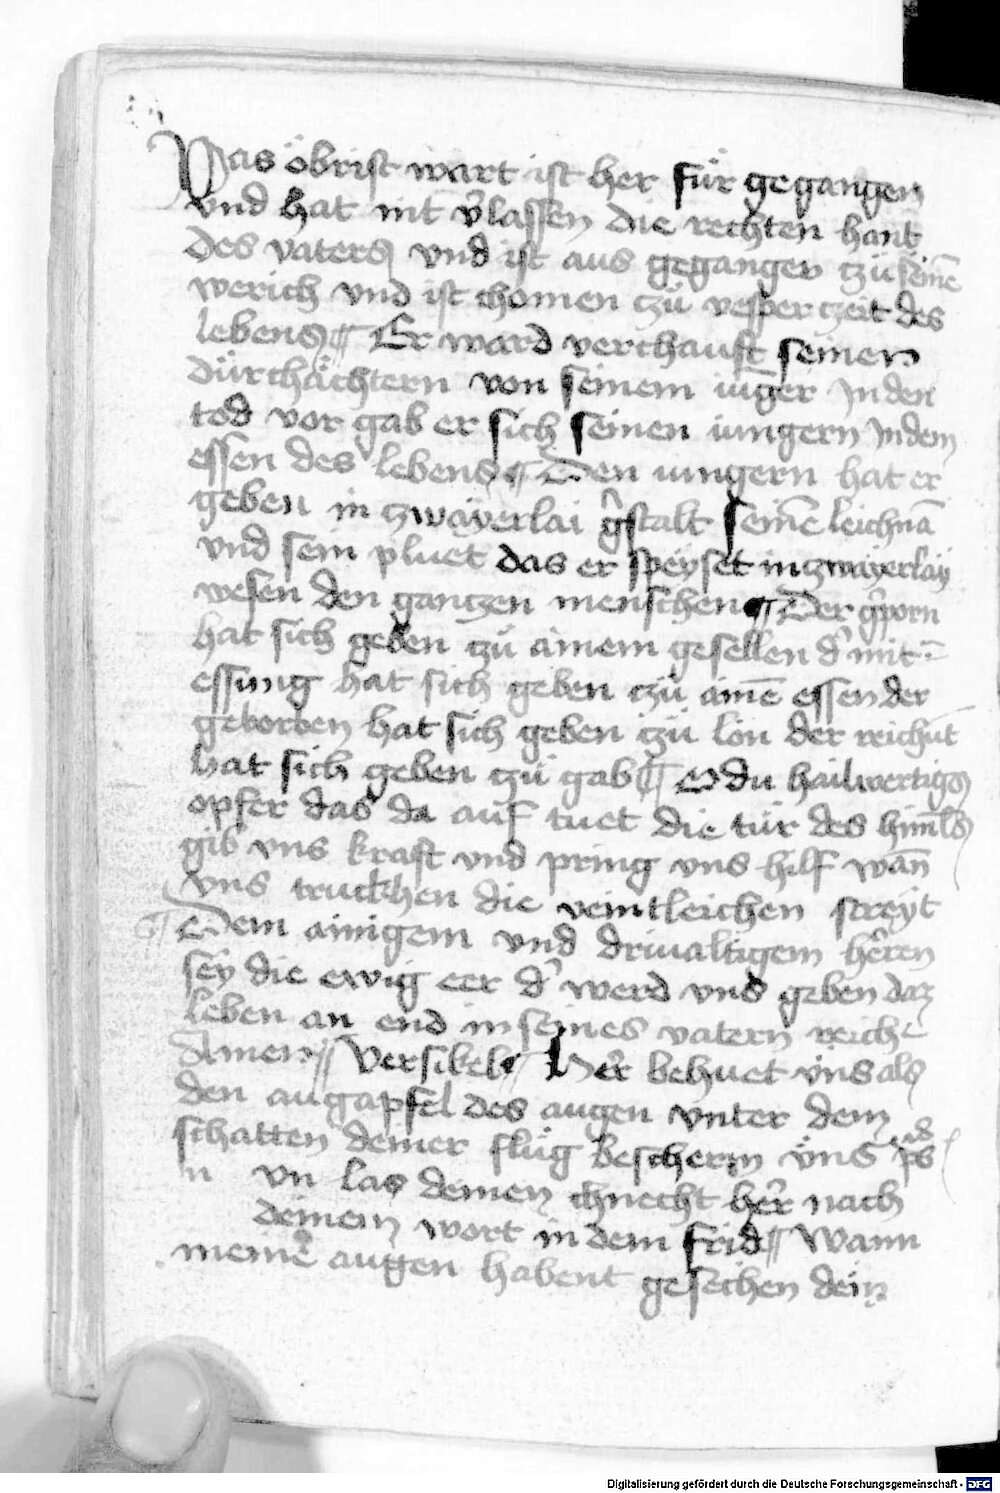 Das öbrist wart ist her für gegangen
vnd hat nit v̉lassen die rechten hant
des vaters vnd ist aus gegangen tzü seinē
werich vnd ist chömen tzü vesper tzeit des
lebens ¶ Er ward verchauft seinen
dürchächtern von seinem iūger In den
tod vor gab er sich seinen iungern In dem
essen des lebens ¶ Den iungern hat er
geben in tzwäyerlai g̉stalt seinē leichnā
vnd sein pluet das er speyset in tzwäyerläy
wesen den gantzen menschen ¶ Der g̉porn
hat sich geben tzü ainem gesellen d̉ mit
essung hat sich geben tzü ainē essen der
gestorben hat sich geben tzü lön der reichūt
hat sich geben tzü gab ¶ O du hailwertigs
opfer das da auf tuet die tür des himls
gib vns kraft vnd pring vns hilf wān
vns truckhen die veintleichen streyt
¶ Dem ainigem vnd driualtigem hēren
sey die ewig eer d̉ werd vns geben daz
leben an end in seines vatern reich
Amen ¶ Versikel ¶ Her̉ behuet vns als
den augapfel des augen vnter dem
schatten deiner flüg bescherm vns ps
n vn las deinen chnecht her̉ nach
deinem wort in dem frid ¶ Wann
meine augen habent gesechen dein
Digitalisierung gefördert durch die Deutsche Forschungsgemeinschaft - DFG